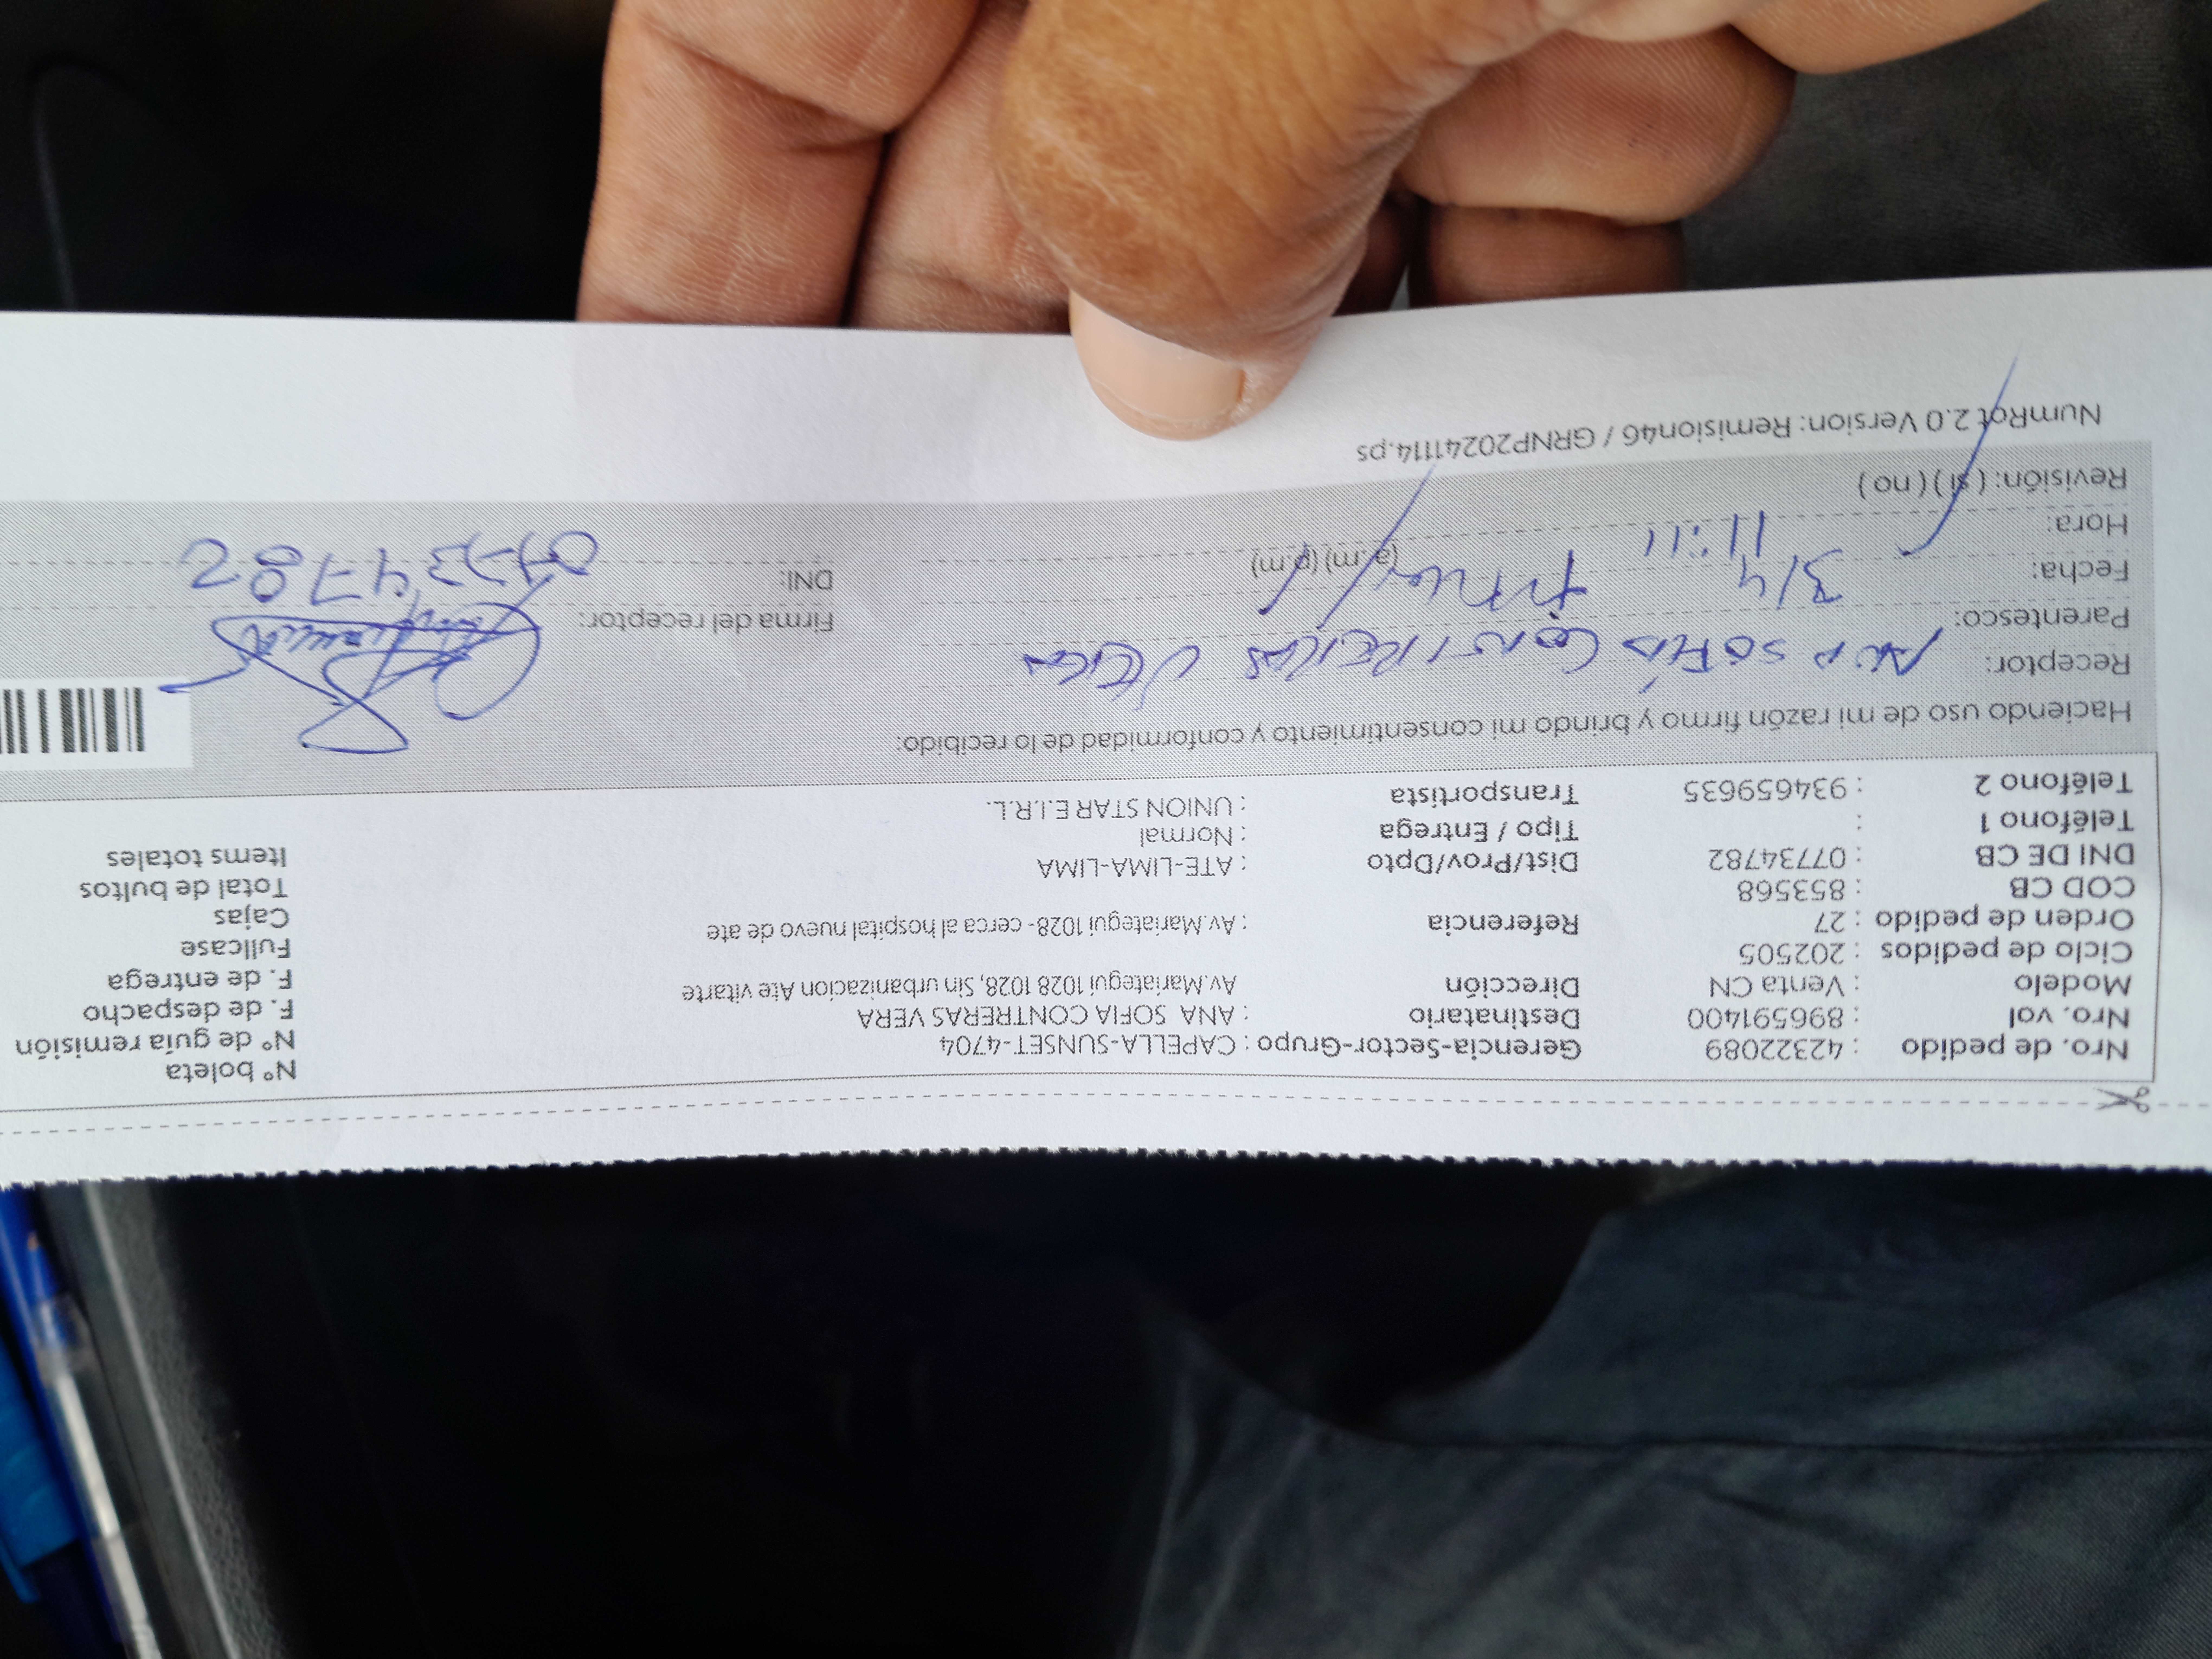 Nº boleta
Nro. de pedido : 42322089 Gerencia-Sector-Grupo : CAPELLA-SUNSET-4704 Nº de guía remisión
Nro. vol : 896591400 Destinatario : ANA SOFIA CONTRERAS VERA F. de despacho
Modelo : Venta CN Dirección Av.Mariategui 1028 1028, Sin urbanizacion Ate vitarte F. de entrega
Ciclo de pedidos : 202505 Fullcase
Orden de pedido : 27 Referencia : Av.Mariategui 1028- cerca al hospital nuevo de ate Cajas
COD CB : 853568 Total de bultos
DNI DE CB : 07734782 Dist/Prov/Dpto : ATE-LIMA-LIMA Items totales
Teléfono 1 : Tipo / Entrega : Normal
Teléfono 2 : 934659635 Transportista : UNION STAR E.I.R.L.
Haciendo uso de mi razón firmo y brindo mi consentimiento y conformidad de lo recibido:
Receptor: ANA SOFIA CONTRERAS VERA
Parentesco: Firma del receptor:
Fecha: 3/4 DNI: 07734782
Hora: 11:11 (a.m) (p.m)
Revisión: ( si ) ( no )
NumRot 2.0 Version: Remision46 / GRNP20241114.ps